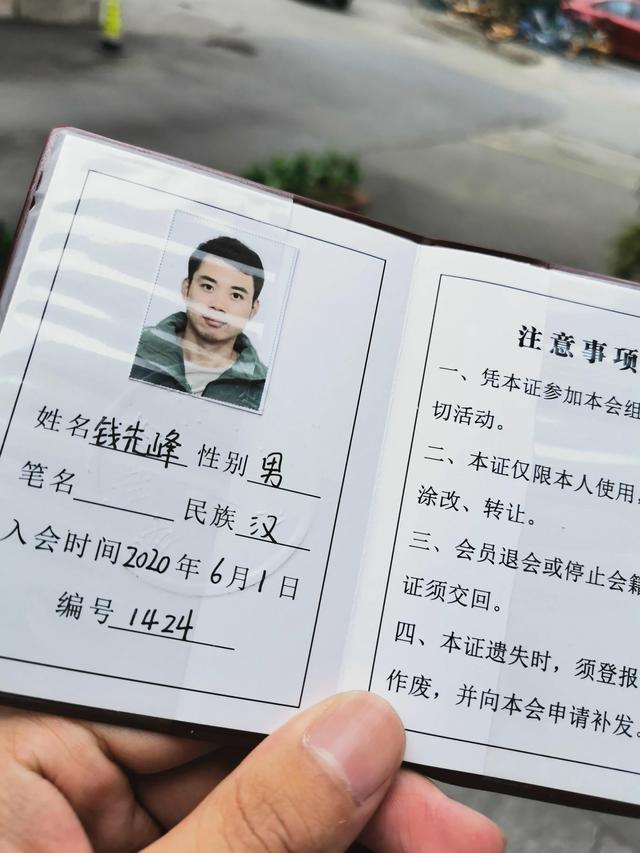 姓名钱先峰 性别男
笔名 民族汉
入会时间2020年6月1日
编号1424
注意事项
一、凭本证参加本会组
切活动。
二、本证仅限本人使用，
涂改、转让。
三、会员退会或停止会籍
证须交回。
四、本证遗失时，须登报
作废，并向本会申请补发。